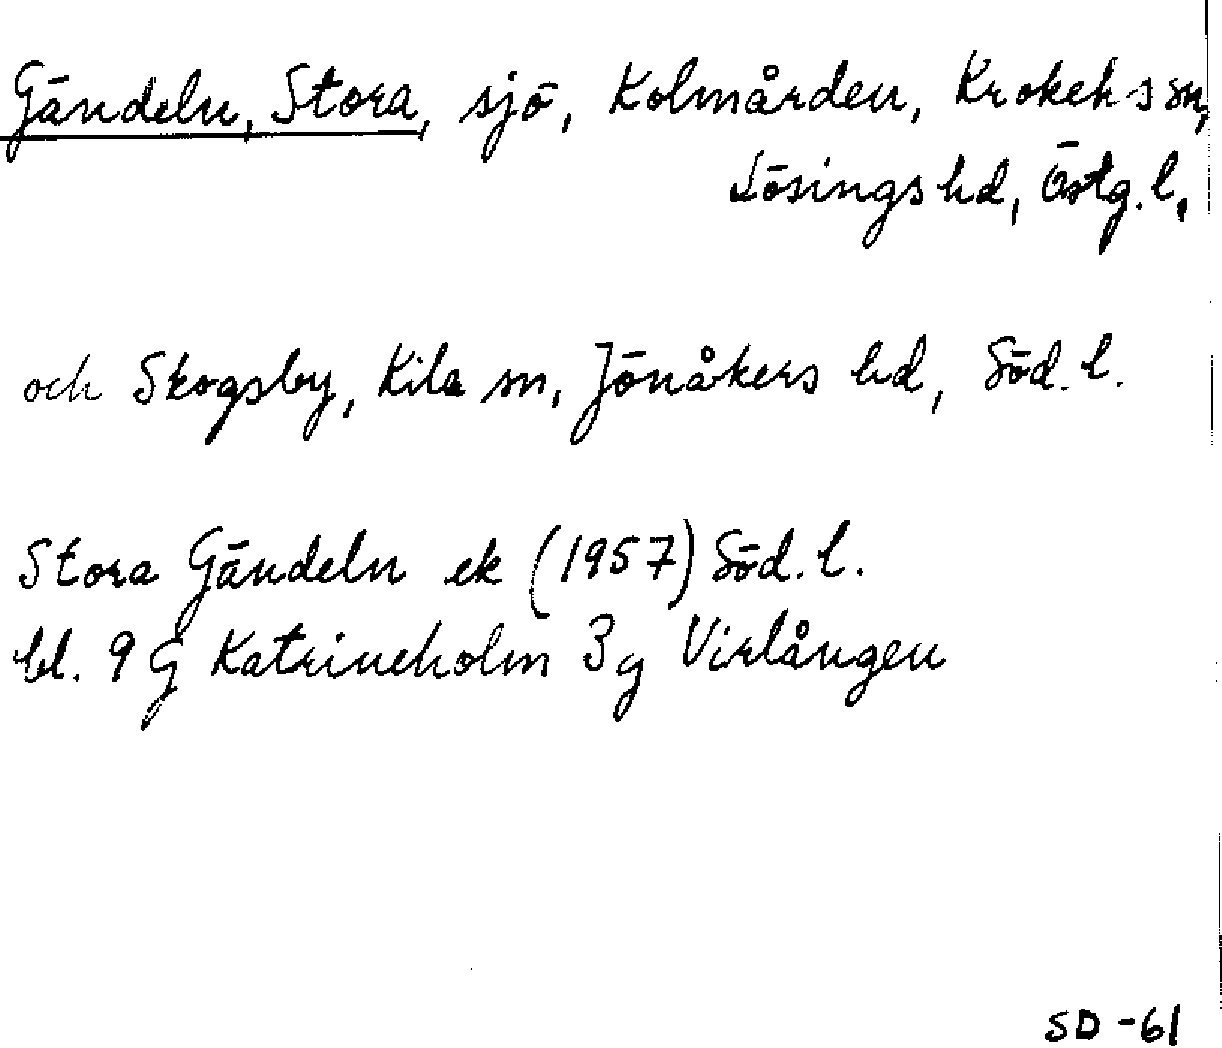 Gändeln, Stora, sjö, Kolmården, Krokeks sn,
Lösings hd, Östg. l.
och Skogsby, Kila sn, Jönåkers hd, Söd. l.
Stora Gändeln ek (1957) Söd. l.
bl. 9 G Katrineholm 3 g Virlången
SD -61